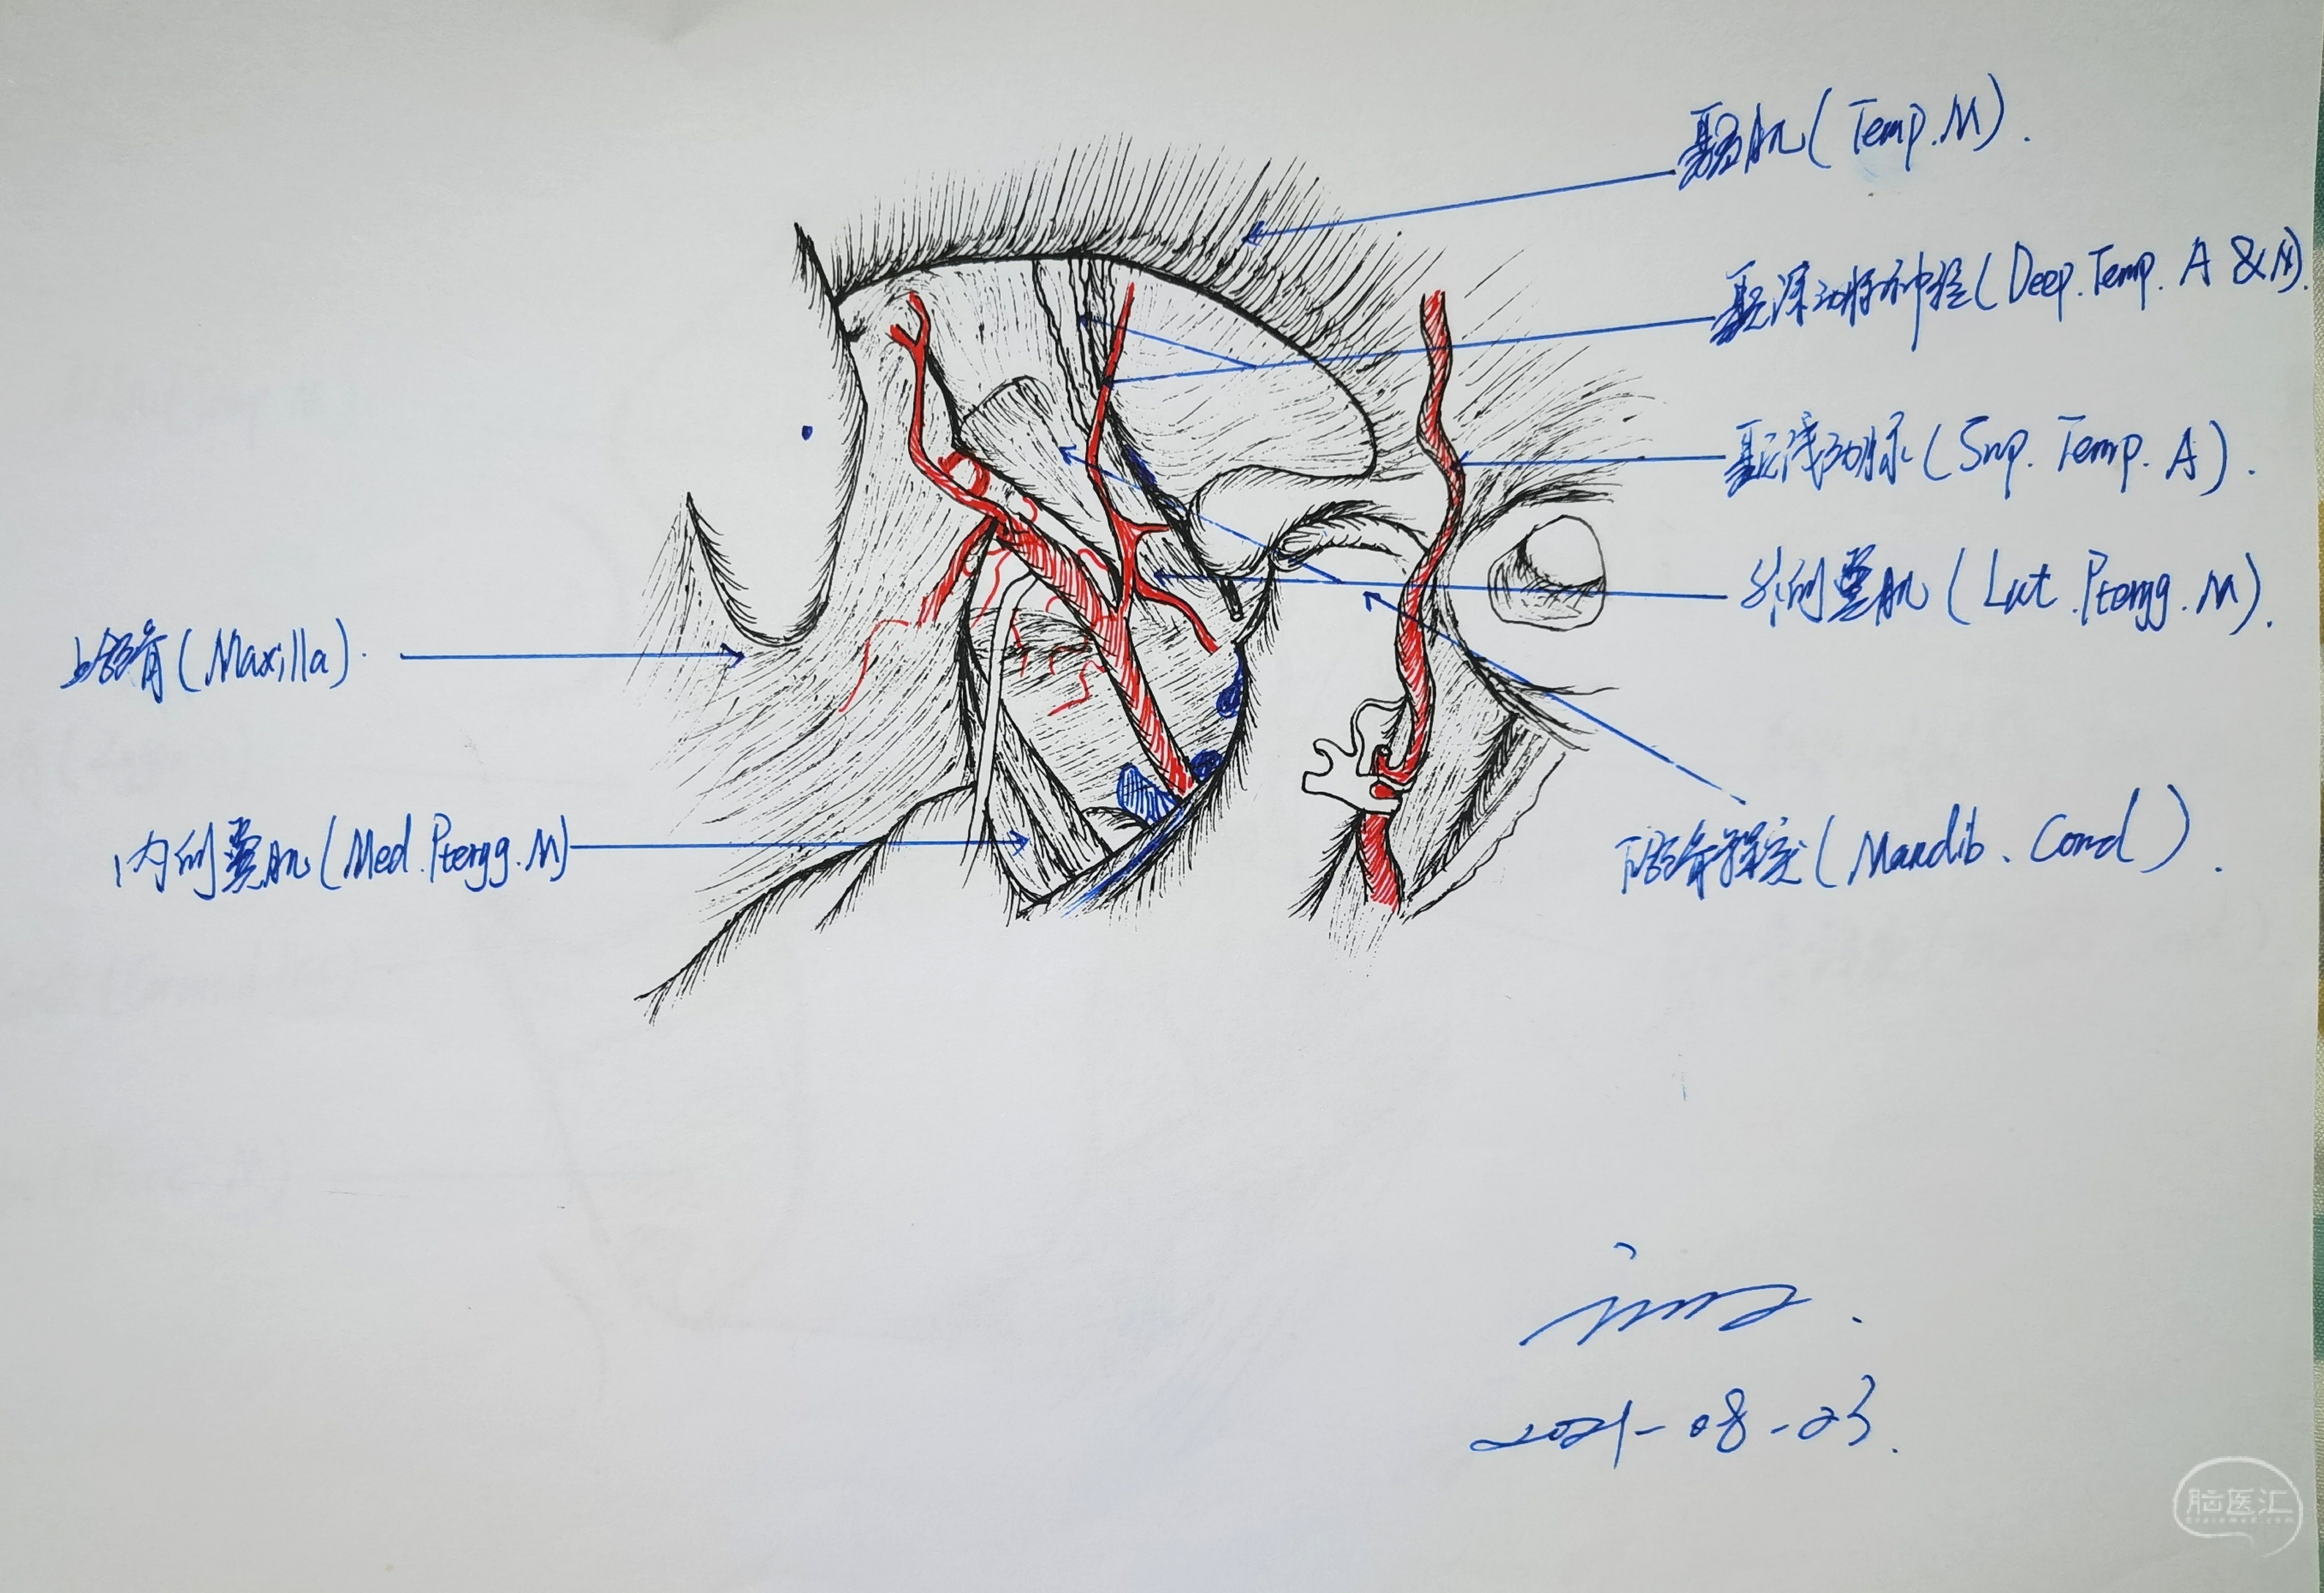 颞肌(Temp.M).
颞深动脉神经(Deep.Temp. A & N).
颞浅动脉(Sup. Temp. A).
外侧翼肌(Lat.Pteryg.M).
上颌骨(Maxilla).
下颌骨髁突(Mandib. Cond).
内侧翼肌(Med.Pteryg.M)
2021-08-23.
脑医汇
brainmed.com